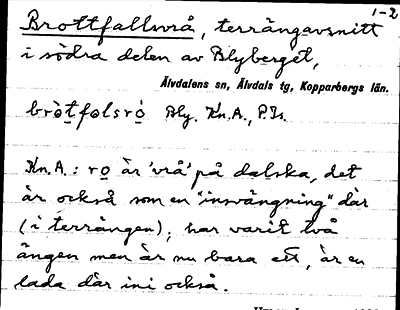 1-2
Brottfallsvrå, terrängavsnitt
i södra delen av Blyberget,
Älvdalens sn, Älvdals tg, Kopparbergs län.
bròtfolsró Bly. Kn.A., P.Is.
Kn.A.: ro är 'vrå' på dalska, det
är också som en "insvängning" där
(i terrängen); har varit två
ängen men är nu bara ett, är en
lada där ini också.